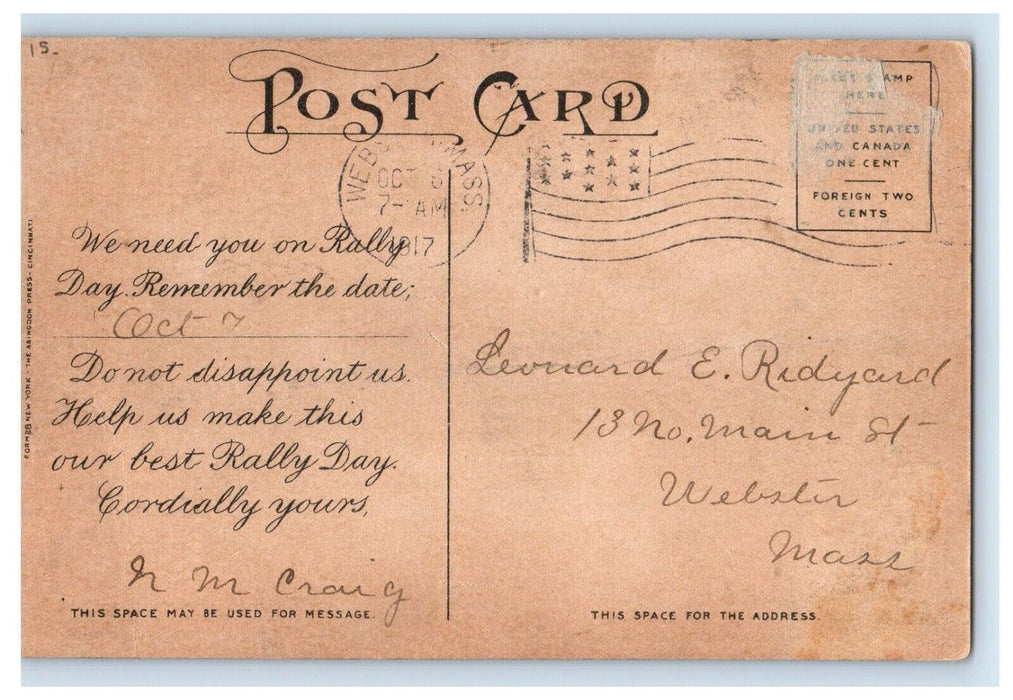 15-
POST CARD
WEB MASS.
OCT 6
7- AM
1917
PLACE STAMP
HERE
UNITED STATES
AND CANADA
ONE CENT
FOREIGN TWO
CENTS
We need you on Rally
Day. Remember the date;
Oct 7
Do not disappoint us.
Help us make this
our best Rally Day.
Cordially yours,
N M Craig
THIS SPACE MAY BE USED FOR MESSAGE.
FORM 28 NEW YORK - THE ABINGDON PRESS - CINCINNATI
Leonard E. Ridyard
13 No. Main St
Webster
Mass
THIS SPACE FOR THE ADDRESS.